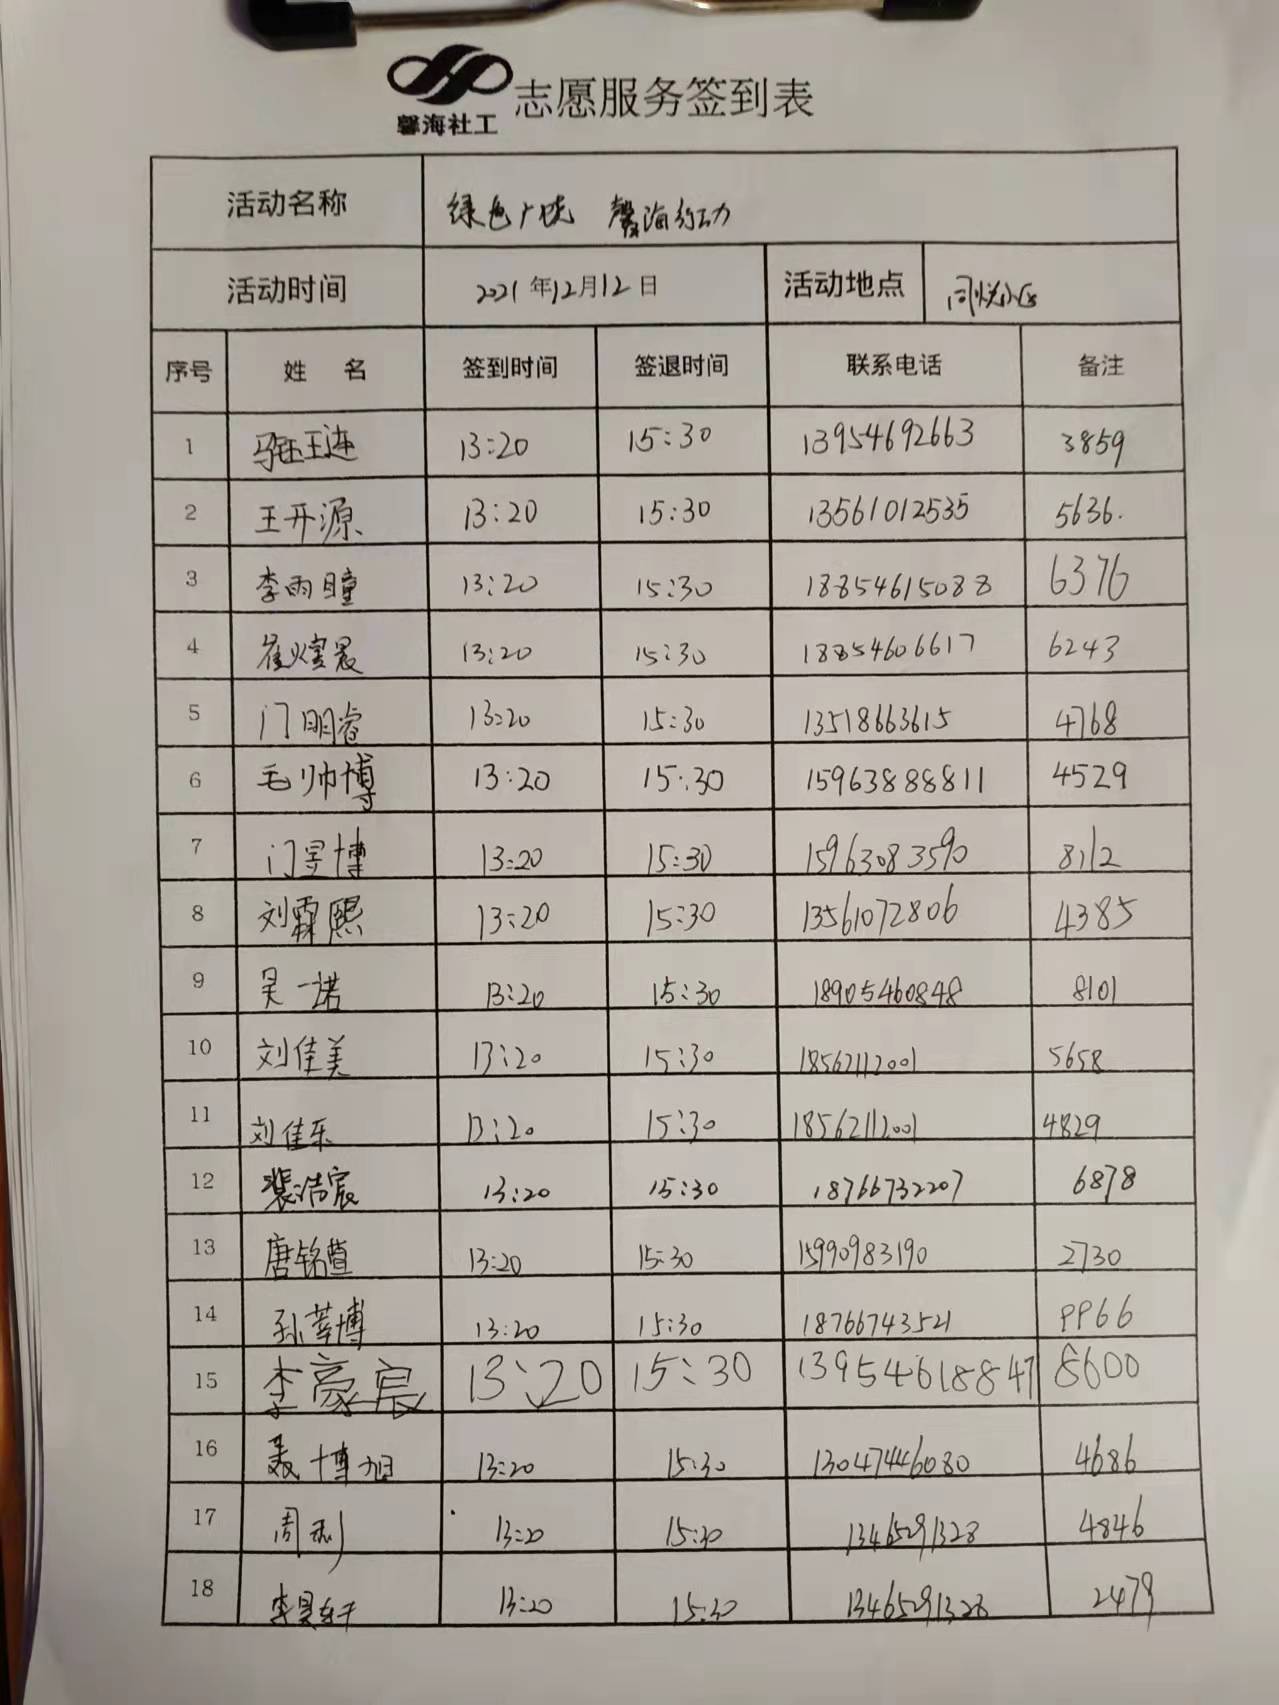 馨海社工
志愿服务签到表
活动名称 绿色广饶 馨海行动
活动时间 2021年12月12日 活动地点 同悦小区
序号 姓 名 签到时间 签退时间 联系电话 备注
1 13:20 15:30 13954692663 3859
2 王开源 13:20 15:30 13561012535 5636.
3 李雨瞳 13:20 15:30 18854615088 6376
4 崔煜宸 13:20 15:30 18854606617 6243
5 门明睿 13:20 15:30 13518663615 4768
6 毛帅博 13:20 15:30 15963888811 4529
7 门昱博 13:20 15:30 15963083590 8112
8 刘霖熙 13:20 15:30 13561072806 4385
9 吴一诺 13:20 15:30 18905460848 8101
10 刘佳美 13:20 15:30 18562112001 5658
11 刘佳乐 13:20 15:30 18562112001 4829
12 裴浩宸 13:20 15:30 18766732207 6878
13 唐铭萱 13:20 15:30 15990983190 2730
14 孙莘博 13:20 15:30 18766743521 PP66
15 李豪宸 13:20 15:30 13954618847 8600
16 聂博旭 13:20 15:30 13047446080 4686
17 周利 13:20 15:30 13465291328 4846
18 李昊轩 13:20 15:30 13465291328 2479